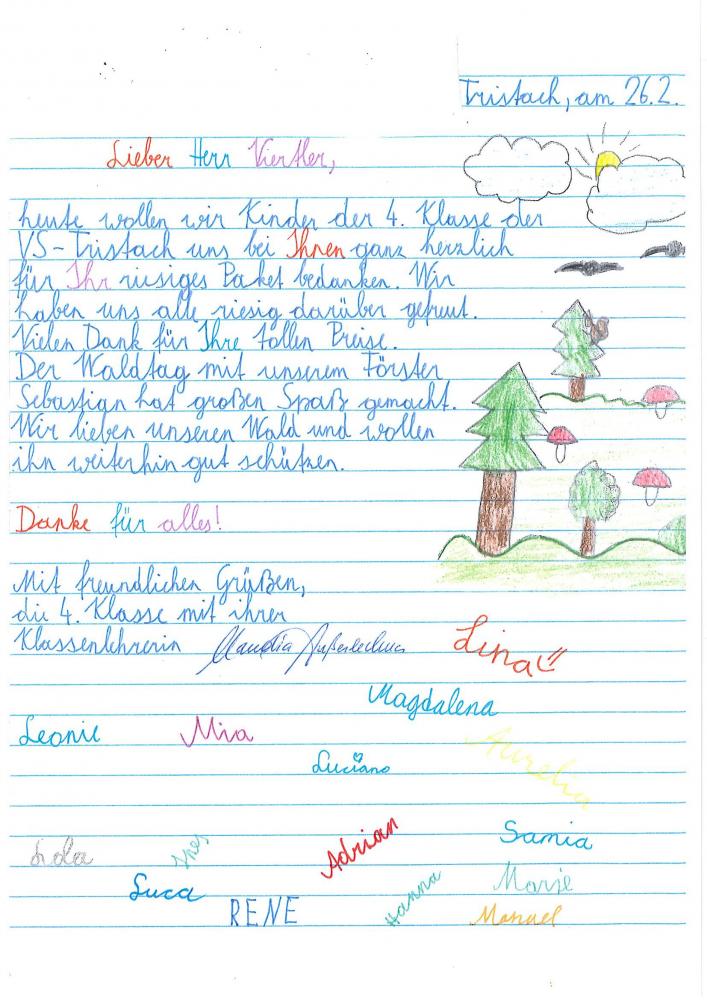 Tristach, am 26.2.
Lieber Herr Viertler,
heute wollen wir Kinder der 4. Klasse der
VS-Tristach uns bei Ihnen ganz herzlich
für Ihr riesiges Paket bedanken. Wir
haben uns alle riesig darüber gefreut.
Vielen Dank für Ihre tollen Preise.
Der Waldtag mit unserem Förster
Sebastian hat großen Spaß gemacht.
Wir lieben unseren Wald und wollen
ihn weiterhin gut schützen.
Danke für alles!
Mit freundlichen Grüßen,
die 4. Klasse mit ihrer
Klassenlehrerin Claudia Außerlechner
Lina
Magdalena
Leonie Mia
Aurelia
Luciano
Adrian
Samia
Lola
Ines
Luca
Marie
Hanna
RENE
Manuel